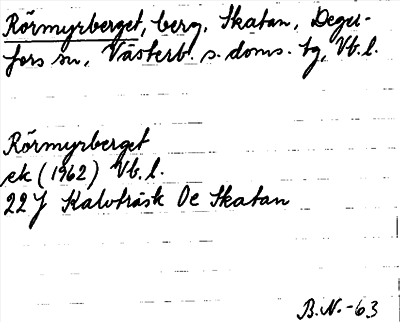 Rörmyrberget, berg, Skatan, Deger-
fors sn, Västerb. s. doms. tg, Vb. l.
Rörmyrberget
ek (1962) Vb. l.
22J Kalvträsk Oe Skatan
B.N. -63